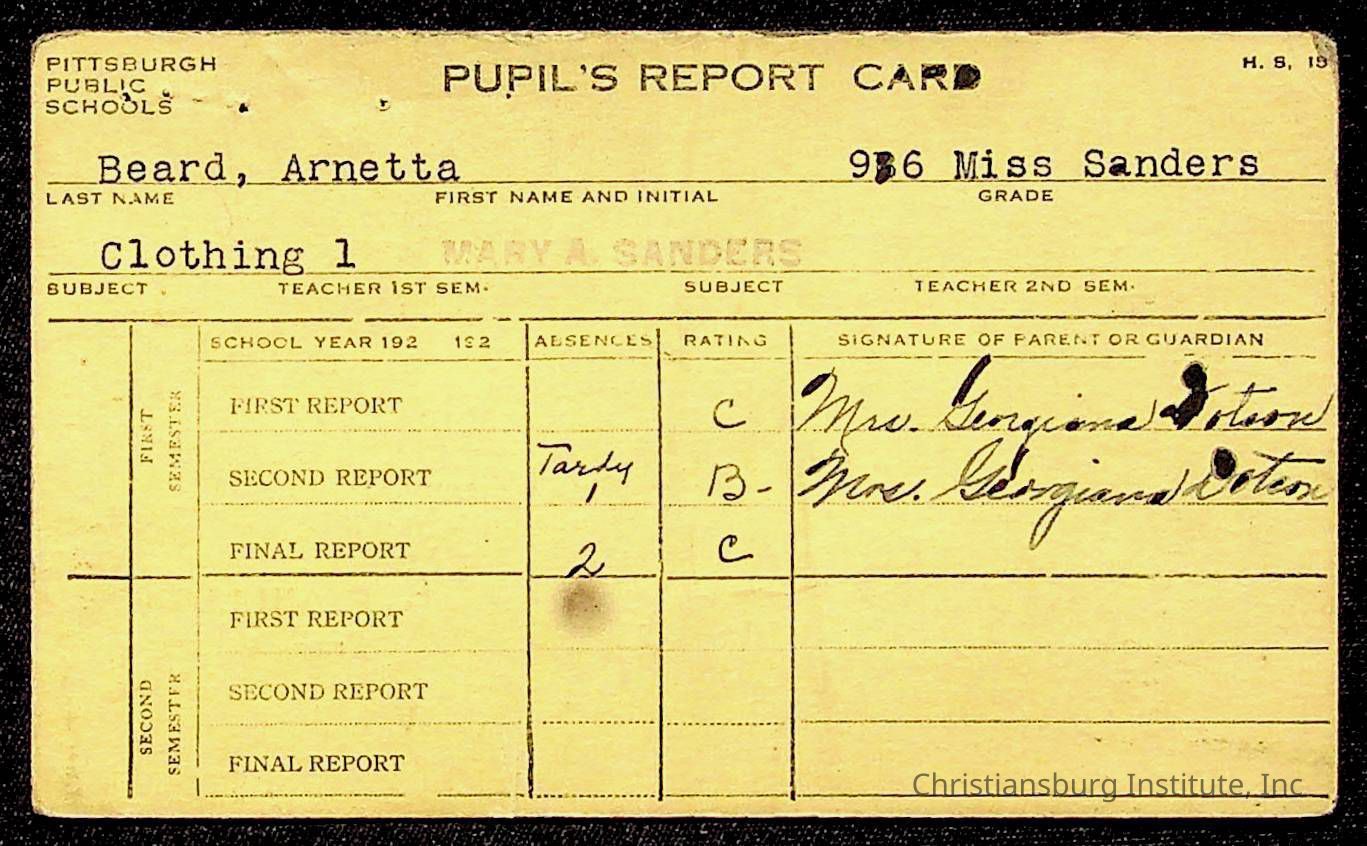 PITTSBURGH
PUBLIC
SCHOOLS
PUPIL'S REPORT CARD
H. S. 19
Beard, Arnetta 936 Miss Sanders
LAST NAME FIRST NAME AND INITIAL GRADE
Clothing 1 MARY A. SANDERS
SUBJECT TEACHER 1ST SEM. SUBJECT TEACHER 2ND SEM.
SCHOOL YEAR 192 192 ABSENCES RATING SIGNATURE OF PARENT OR GUARDIAN
FIRST SEMESTER
FIRST REPORT C Mrs. Georgiana Dotson
SECOND REPORT Tardy 1 B- Mrs. Georgiana Dotson
FINAL REPORT 2 C
SECOND SEMESTER
FIRST REPORT
SECOND REPORT
FINAL REPORT
Christiansburg Institute, Inc